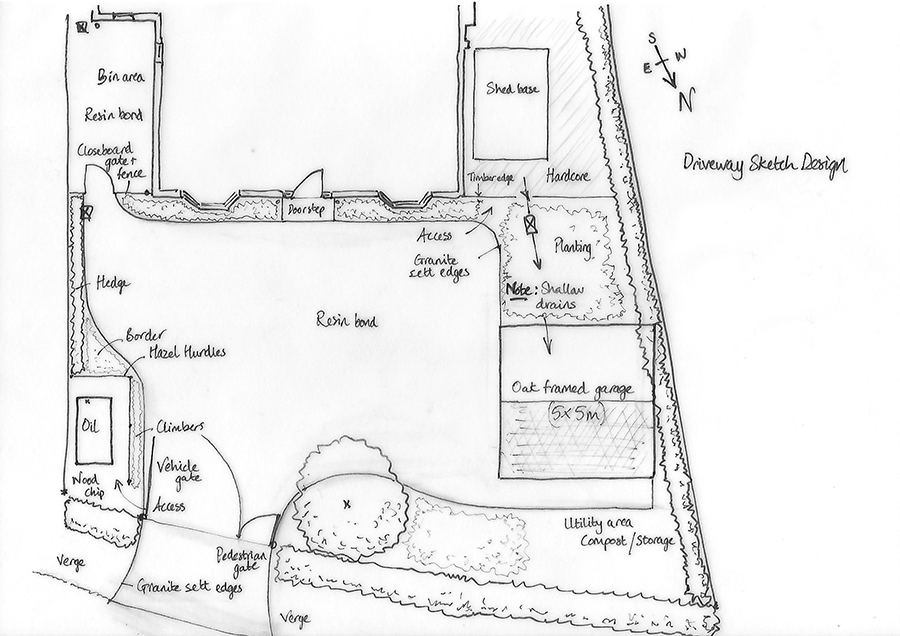 Bin area
Resin bond
Closeboard
gate +
fence
Shed base
S
E W
N
Driveway Sketch Design
Timber edge
Hardcore
Doorstep
Access
Granite
sett edges
Planting
Note: Shallow
drains
Hedge
Resin bond
Border
Hazel Hurdles
Oat framed garage
(5x5m)
Oil
Climbers
Vehicle
gate
Wood
chip
Access
x
Utility area
Compost/Storage
Pedestrian
gate
Verge
Granite sett edges
Verge